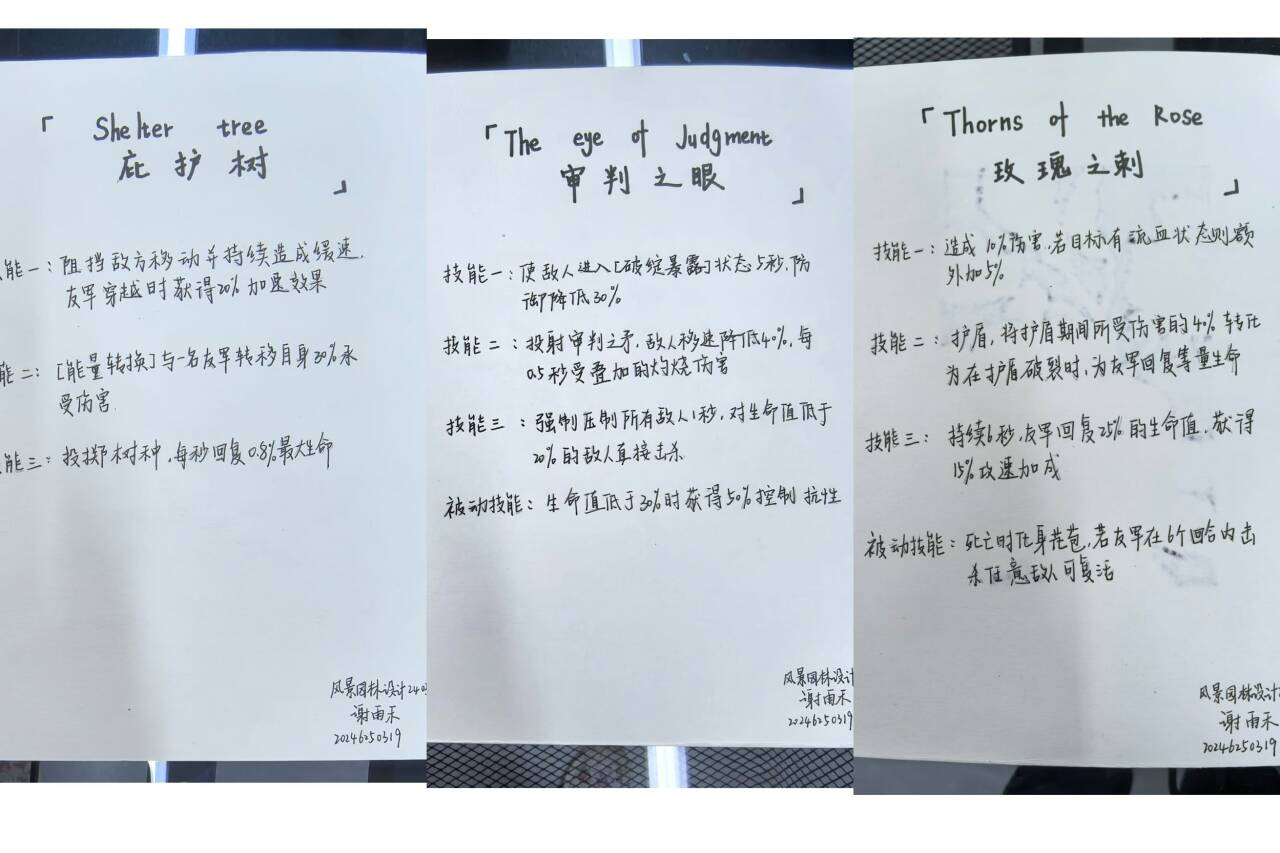 「 Shelter tree
庇护树 」
能一：阻挡敌方移动并持续造成缓速，
友军穿越时获得20%加速效果
能二：[能量转换]与一名友军转移自身30%承
受伤害.
能三：投掷树种，每秒回复0.8%最大生命
风景园林设计240
谢雨禾
20246250319
「The eye of Judgment
审判之眼 」
技能一：使敌人进入[破绽暴露]状态5秒，防
御降低30%
技能二：投射审判之矛，敌人移速降低40%，每
0.5秒受叠加的灼烧伤害
技能三：强制压制所有敌人1秒，对生命值低于
20%的敌人直接击杀
被动技能：生命值低于30%时获得50%控制抗性
风景园林设计
谢雨禾
20246250319
「Thorns of the Rose
玫瑰之刺 」
技能一：造成10%伤害，若目标有流血状态则额
外加5%
技能二：护盾，将护盾期间所受伤害的40%转化
为在护盾破裂时，为友军回复等量生命
技能三：持续6秒，友军回复25%的生命值，获得
15%攻速加成
被动技能：死亡时化身花苞，若友军在6个回合内击
杀任意敌人可复活
风景园林设计
谢雨禾
20246250319